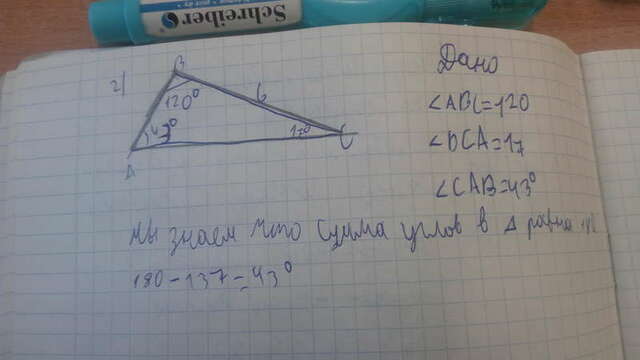 Schreiber
2)
B
120°
6
43°
17°
C
A
Дано
∠ABC=120
∠BCA=17
∠CAB=43°
Мы знаем что сумма углов в Δ равна
180-137=43°